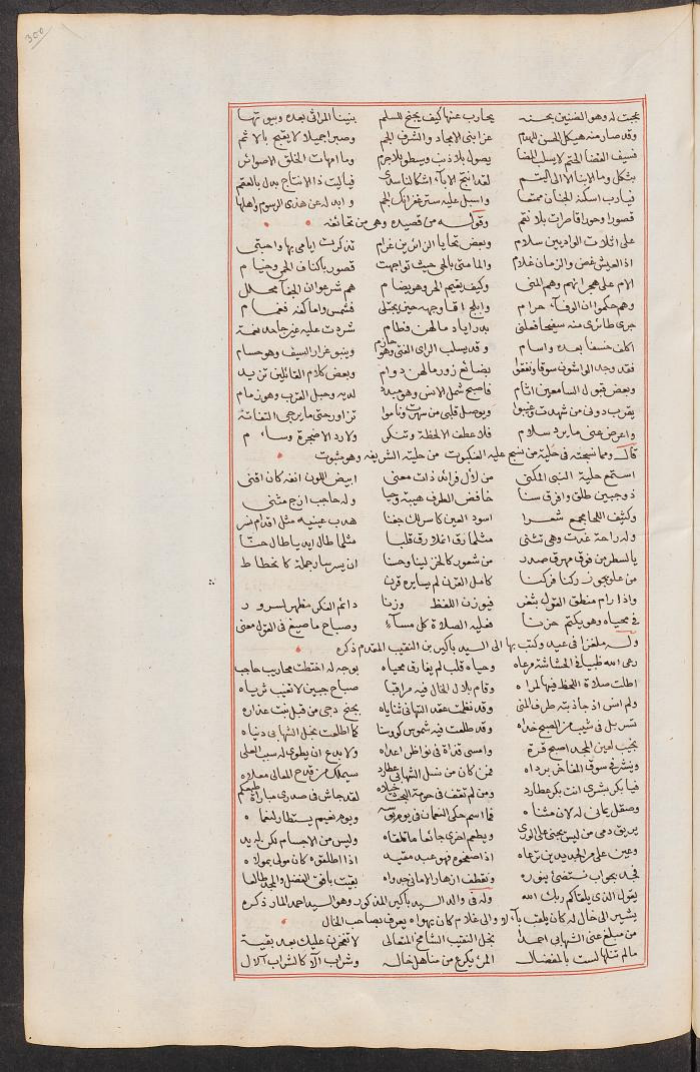 300
عجبت له وهو الضنين بحسنه يحارب عنها كيف يجنح للسلم بنينا المراثى بعده وبيوتها
وقد صار منه هيكل الحسن للهدم عزا بنى الامجاد والشرف الجم وصبرا جميلا لا يقبح بالاثم
فسيف القضا الحتم لا يسلب المضا يصول بلا ذنب ويسطو بلا جرم وما امهات الخلق الا صوائر
بثكل وما الابنا الا الى اليتم لقد انتج الاباء اشكالنا سدى فياليت ذا الانتاج بدل بالعقم
فيارب اسكنه الجنان ممتعا واسبل عليه ستر غفرانك الجم وابدله عن هذى الرسوم واهلها
قصورا وحورا قاصرات بلا نقم وقوله من قصيده وهى من تحائفه
على اثلات الواديين سلام وبعض تحايا الزائرين غرام تذكرت ايامى بها واحبتى
اذ العيش غض والزمان غلام والمامتى بالحى حيث تواجهت قصور باكناف الحمى وخيام
الام على هجرانهم وهم المنى وكيف يقيم الحر وهو يضام هم شرعوا ان الجفا محلل
وهم حكموا ان الوفاء حرام وابلج اما وجهه حين يجتلى فشمس واما كفه فغمام
جرى طائرى منه سنيحا فعلنى بدر اياد مالهن فطام شردت عليه غير جاحد نعمة
اكلف خسفا بعده واسام وقد يسلب الراى الفتى وهو حازم وينبو غرار السيف وهو حسام
فقد وجد الواشون سوقا ونفقوا بضائع زور مالهن دوام وبعض كلام القائلين تزيد
وبعض قبول السامعين اثام فاصبح شمل الانس وهو مبدد لديه وحبل القرب وهو زمام
يقرب دونى من شهدت وغيبوا ويوصل قبلى من سهرت وناموا تزاور حتى ما يرجى التفاتة
واعرض حتى ما يرد سلام فلا عطف الا لحظة وتنكر ولا رد الا ضجرة وسام
قال ومما نسجته فى حلية من نسج عليه العنكبوت من حليته الشريفه وهو مثبوت
استمع حلية النبى المكنى من لال فرائد ذات معنى ابيض اللون انفه كان اقنى
ذو جبين طلق وافرق سنا خافض الطرف هيبة وحيا وله حاجب ازج مثنى
وكثيف اللحا بجمع شعرا اسود العين كاسر لك جفنا هدب عينيه مثل اقدام نسر
وله راحة غدت وهى تثنى مثلما رق اغلا رق قلبا مثلما طال ايد يا طال حتا
يالسطر من فوق مهرق صدر من شعور كالخز لينا وحسنا ان يسر سار جملة كانحطاط
من علو يجوز ركنا فركنا كامل القرن لم يسايره قرن
واذا رام منطق القول بثغر فيوزن اللفظ وزنا دائم الفكر مظهر لسرور
فى محياه وهو يكتم حزنا فعليه الصلاة كل مساء وصباح ما صيغ فى القول معنى
وله ملغزا فى عيد وكتب بها الى السيد باكير بن النقيب المقدم ذكره
رعى الله ظبيا فى الحشاشة مرعاه وحياه قلب لم يفارق محياه بوجه له اختطت محاريب حاجب
اطلت صلاة اللحظ فيها لمراه وقام بلال الخال فيه مراقبا صباح جبين لا تغيب ثرياه
ولم انس اذ جاذبته طرف المنى وقد نظمت عقد التهانى ثناياه بجنح دجى من قبل بنت عذاره
تسربل فى شيب من الصبح خداه وقد طلعت فيه شموس كؤوسنا كما طلعت بنجل الشهابى دنياه
نجيب لعين المجد اصبح قرة وامسى قذاة فى نواظر اعداه ولا بدع ان يطوى له سبب العلى
وينشر فى سوق المفاخر برداه فمن كان من نسل الشهابى عطارد سيملك من قدح المعالى معلاه
فيا بكر بشرى انت بكر عطارد ومن لم تقف فى حومة البحث خيلاه لقد جاش فى صدرى مباراة طبعكم
وصقل يمانى له لان مثناه فما اسم حكى النعمان فى يوم بؤسه ويوم نعيم يستطار لنعماه
يريق دمى من ليس يجنى على الورى ويطعم اخرى جائعا ما تلقاه وليس من الاجسام لكن له يد
وعين على مر الجديدين ترعاه اذا صحفوه فهو عبد مقيد اذا اطلقوه كان مولى بمولاه
فجد بجواب نستضئ بنوره ونقطف ازهار الامانى جدواه بقيت بافق الفضل والمجد طالعا
يقول الذى يلقاكم ربك الله وله فى والد السيد باكير المذكور وهو السيد احمد المار ذكره
يشير الى خال له كان يلقب بآلاو والى غلام كان يهواه يعرف بصاحب الخال
من مبلغ عنى الشهابى احمدا نجل النقيب الشامخ المتعالى لا تفخرن عليك بعد بقية
مالم تنلها لست بالمفضال المرء يكرع من مناهل خاله وشراب الاو كالشراب الآل